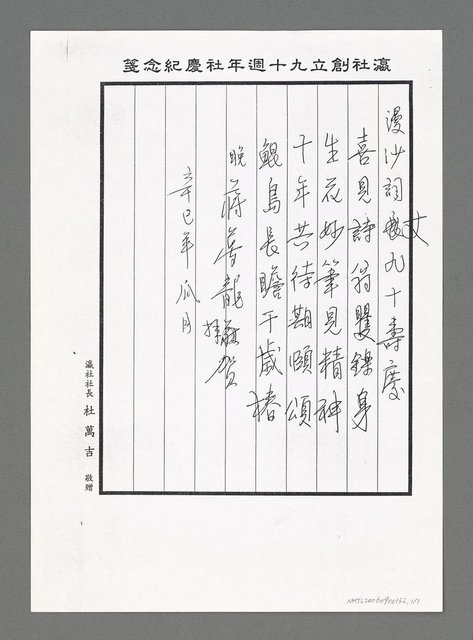 瀛社創立九十週年社慶紀念箋
漫沙詞丈九十壽慶
喜見詩翁矍鑠身
生花妙筆見精神
十年共待期頤頌
鯤島長瞻千歲椿
晚 蔣夢龍 賀
辛巳年 瓜月
瀛社社長 杜萬吉 敬贈
NMTL20060900132, 1/1